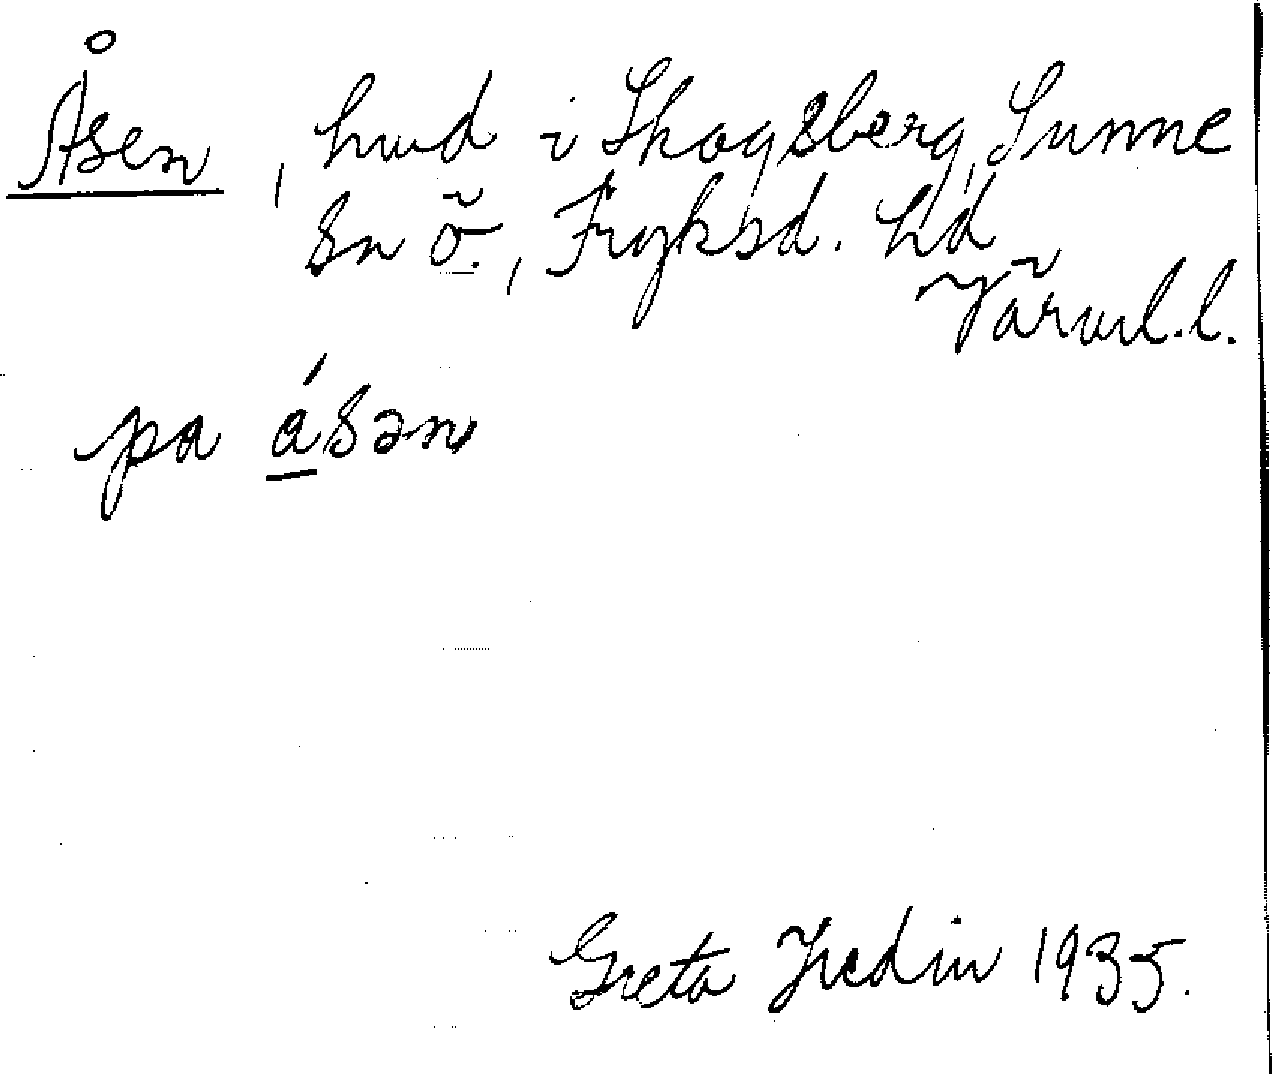 Åsen, hmd i Skogsberg, Sunne
sn ö., Fryksd. hd
Värml.l.
pa ásən
Greta Hedin 1935.